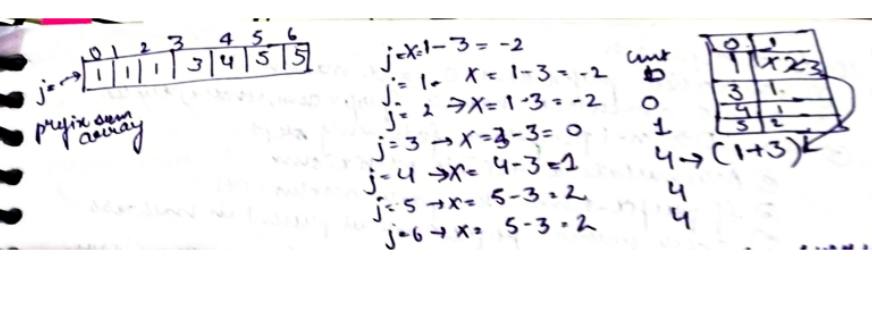 0 1 2 3 4 5 6
j= → 1 1 1 3 4 5 5
prefix sum
array
j= x=1-3 = -2
j= 1- x = 1-3 = -2
j= 2 → x= 1-3 = -2
j= 3 → x = 3-3= 0
j= 4 → x= 4-3=1
j= 5 → x= 5-3 = 2
j=6 → x= 5-3 = 2
cunt
0
0
1
4 → (1+3)
4
4
0 1
1 1 2 3
3 1
4 1
5 2